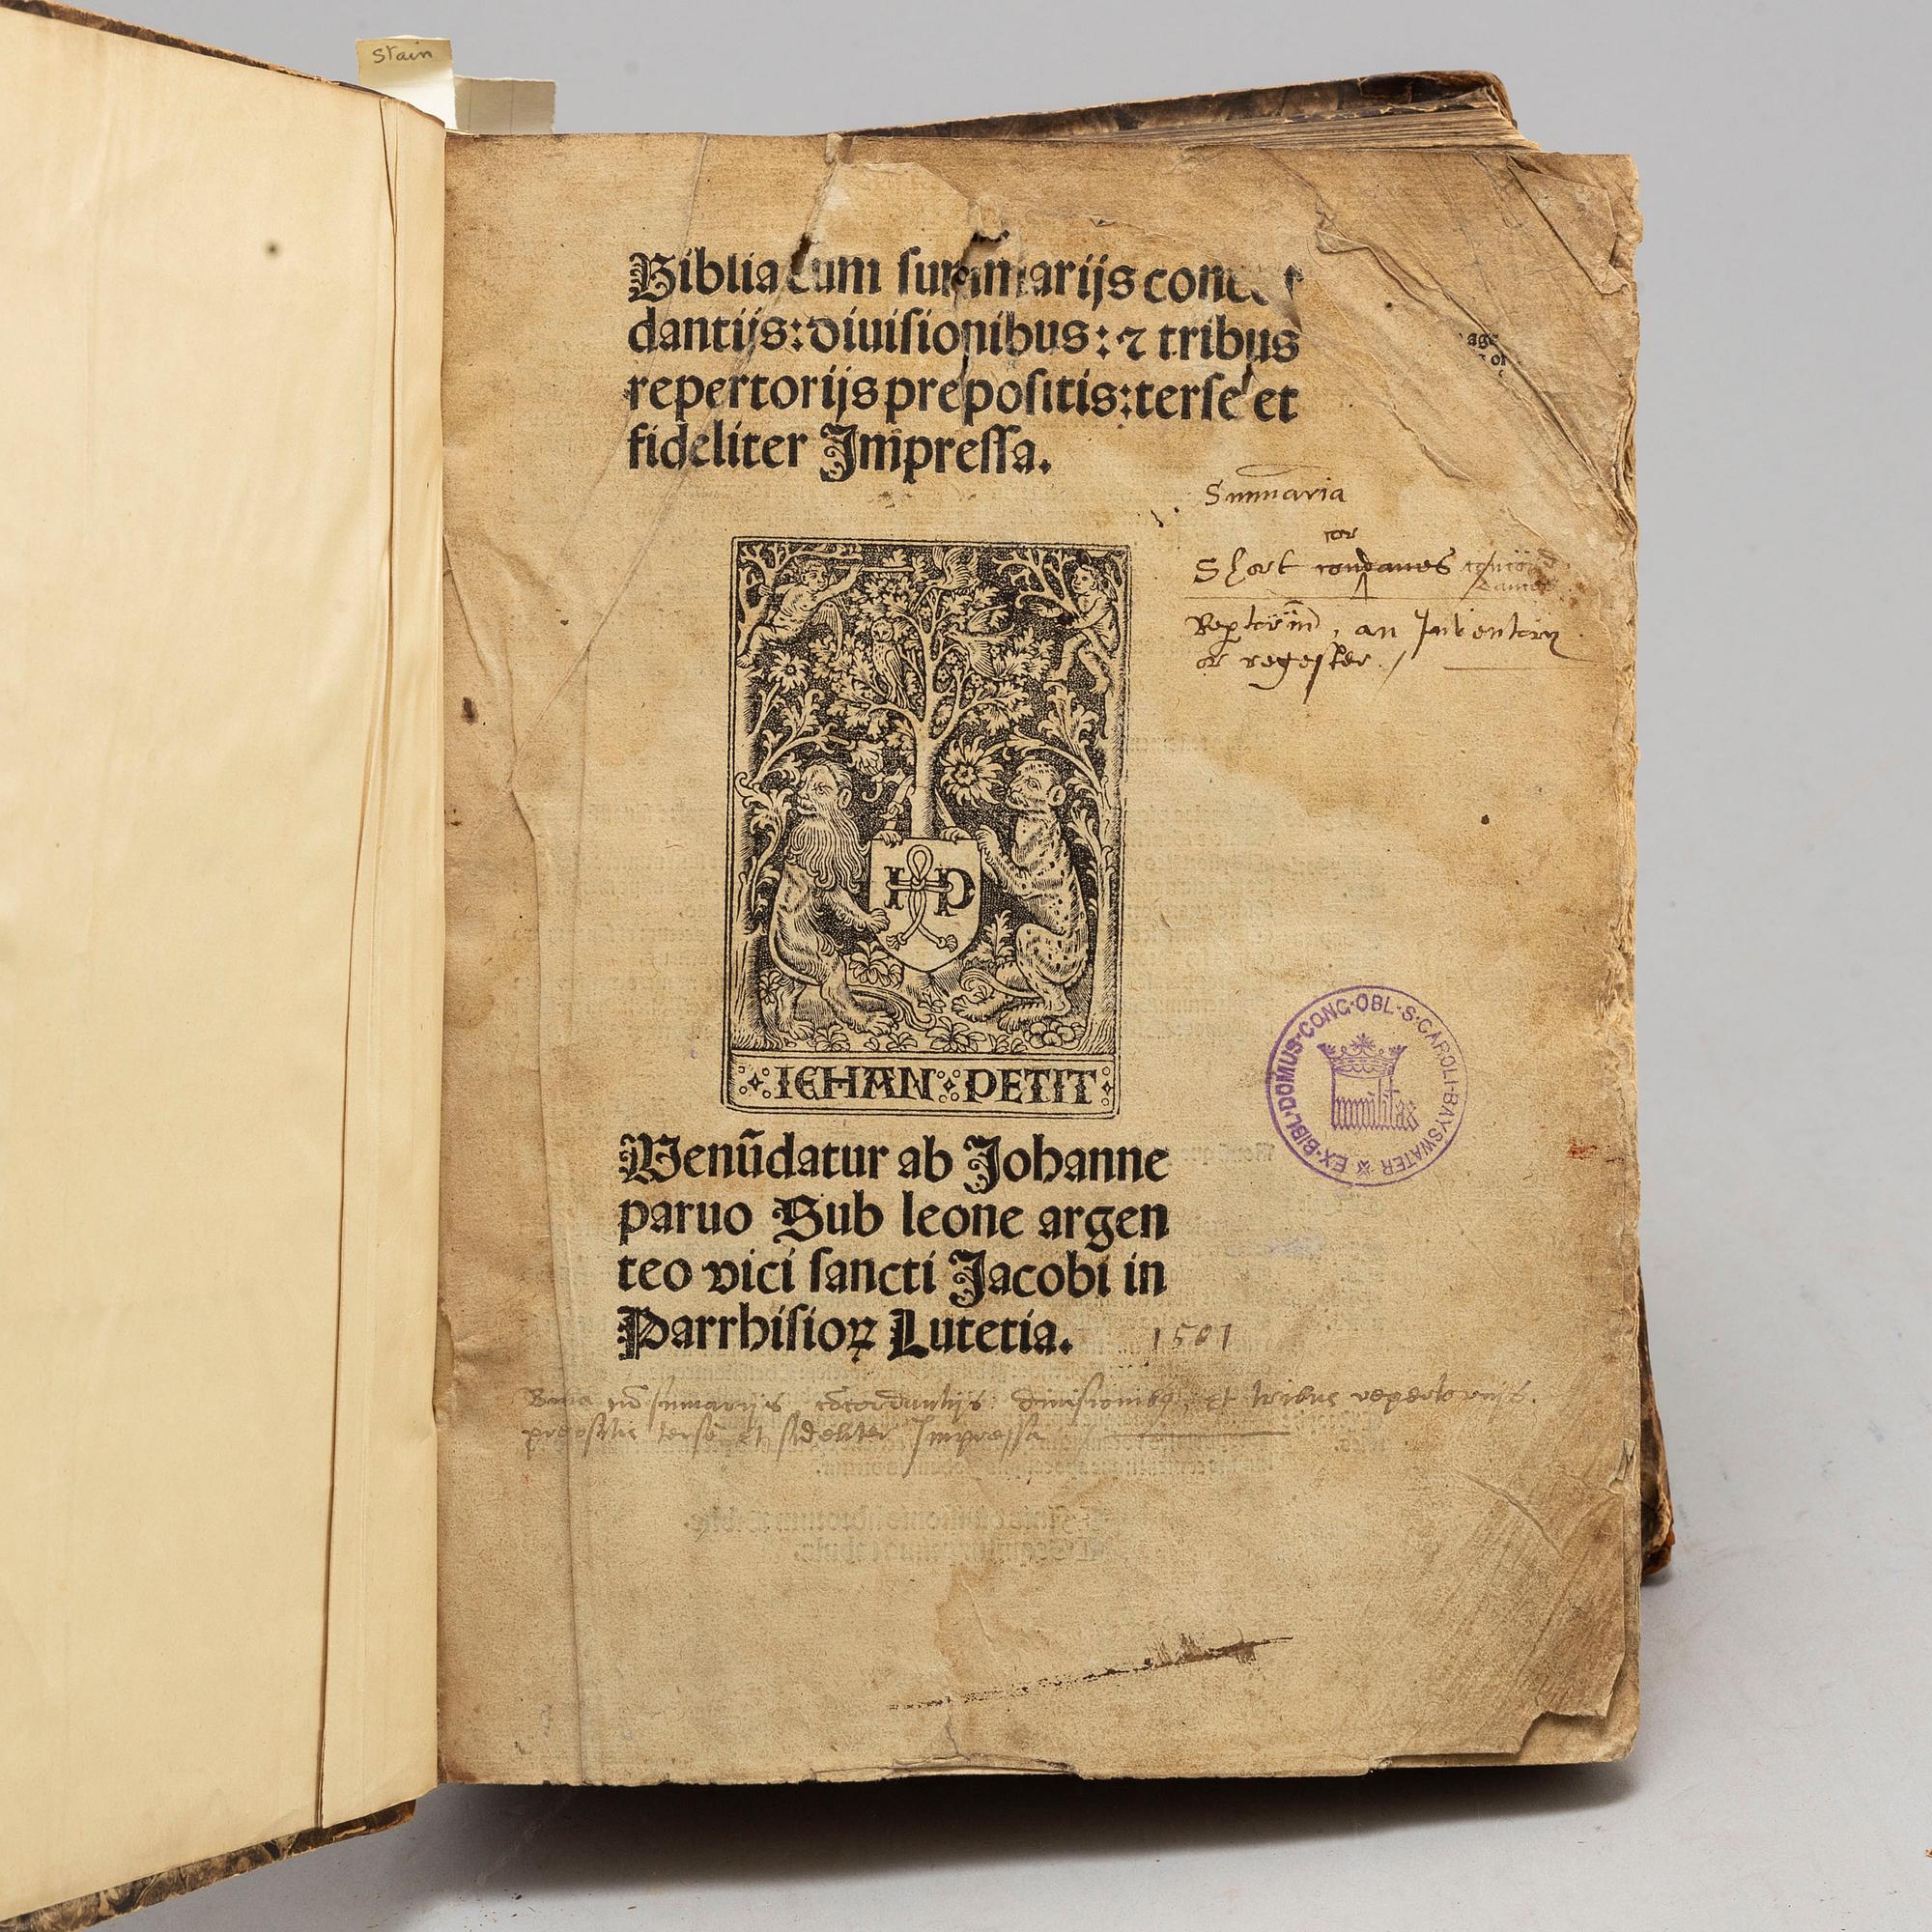 Stain
Biblia cum summarijs concor
dantijs: diuisionibus: ⁊ tribus
repertorijs prepositis: terse et
fideliter Impressa.
Summaria
cor
Short
Reptoriū, an Inventory
or regester
HP
IEHAN PETIT
EX·BIBL·DOMUS·CONG·OBL·S·CAROLI·BAYSWATER
humilitas
Venūdatur ab Johanne
paruo Sub leone argen
teo vici sancti Jacobi in
Parrhisioꝝ Lutetia.
1501
summarijs et tribus repertorijs.
terse et fideliter Impressa